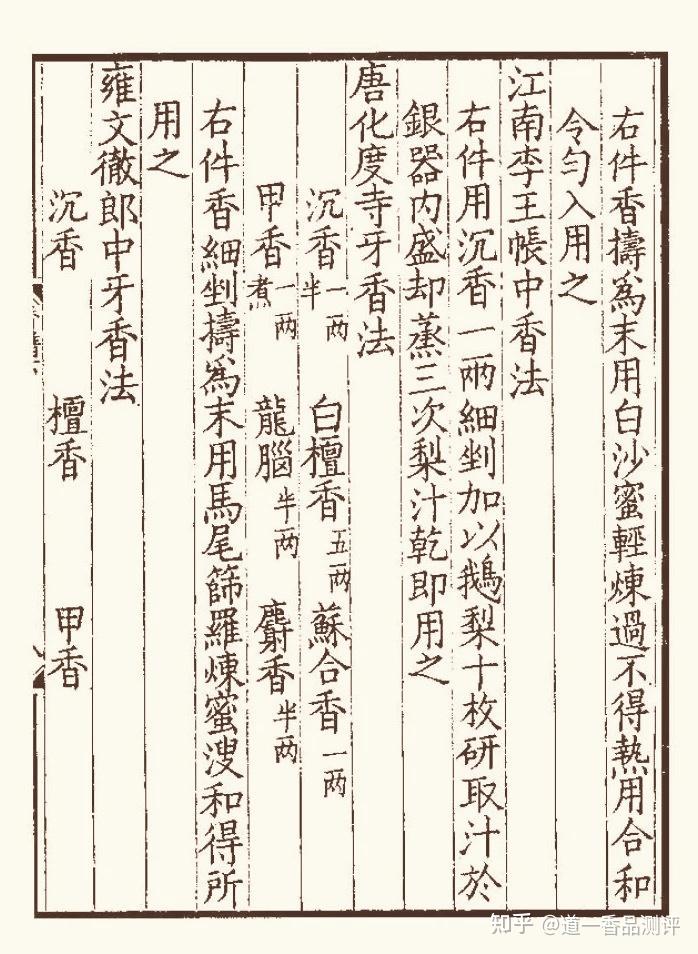 右件香擣為末用白沙蜜輕煉過不得熱用合和
令勻入用之
江南李王帳中香法
右件用沉香一兩細剉加以鵝梨十枚研取汁於
銀器內盛却蒸三次梨汁乾即用之
唐化度寺牙香法
沉香一兩半 白檀香五兩 蘇合香一兩
甲香一兩煮 龍腦半兩 麝香半兩
右件香細剉擣為末用馬尾篩羅煉蜜溲和得所
用之
雍文徹郎中牙香法
沉香 檀香 甲香
知乎 @道一香品测评